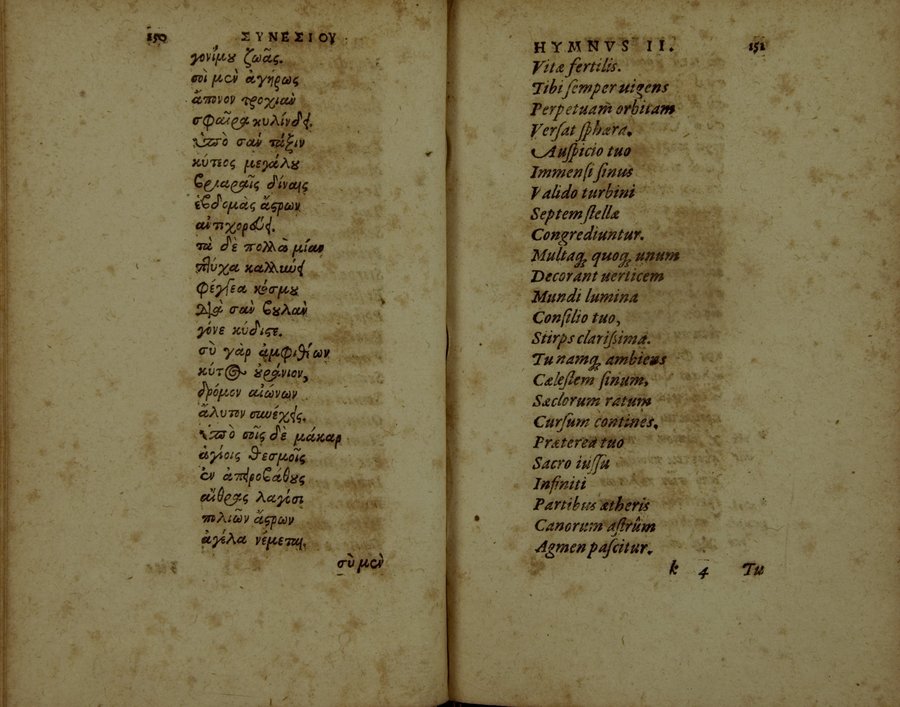 150 ΣΥΝΕΣΙΟΥ
γονίμου ζωᾶς.
σοὶ μὲν ἀγήρως
ἄπονον τροχιὰν
σφαῖρα κυλίνδει.
ὑπὸ σὰν τάξιν
κύτεος μεγάλου
βριαραῖς δίναις
ἑβδομὰς ἄστρων
ἀντιχορεύει.
τὰ δὲ πολλὰ μίαν
πτύχα καλλωπίζει
φέγγεα κόσμου
διὰ σὰν βουλὰν
γόνε κύδιστε.
σὺ γὰρ ἀμφιθέων
κύτος οὐράνιον,
δρόμον αἰώνων
ἄλυτον συνέχεις.
ὑπὸ σοῖς δὲ μάκαρ
ἁγίοις θεσμοῖς
ἐν ἀπειροβάθους
αἴθρας λαγόσι
πολιῶν ἄστρων
ἀγέλα νέμεται.
σὺ μὲν
HYMNVS II. 151
Vitæ fertilis.
Tibi semper uigens
Perpetuam orbitam
Versat sphæra.
Auspicio tuo
Immensi sinus
Valido turbini
Septem stellæ
Congrediuntur.
Multaq́; quoq; unum
Decorant uerticem
Mundi lumina
Consilio tuo,
Stirps clarissima.
Tu namq; ambiens
Cælestem sinum,
Sæclorum ratum
Cursum contines.
Præterea tuo
Sacro iussu
Infiniti
Partibus ætheris
Canorum astrûm
Agmen pascitur.
k 4 Tu